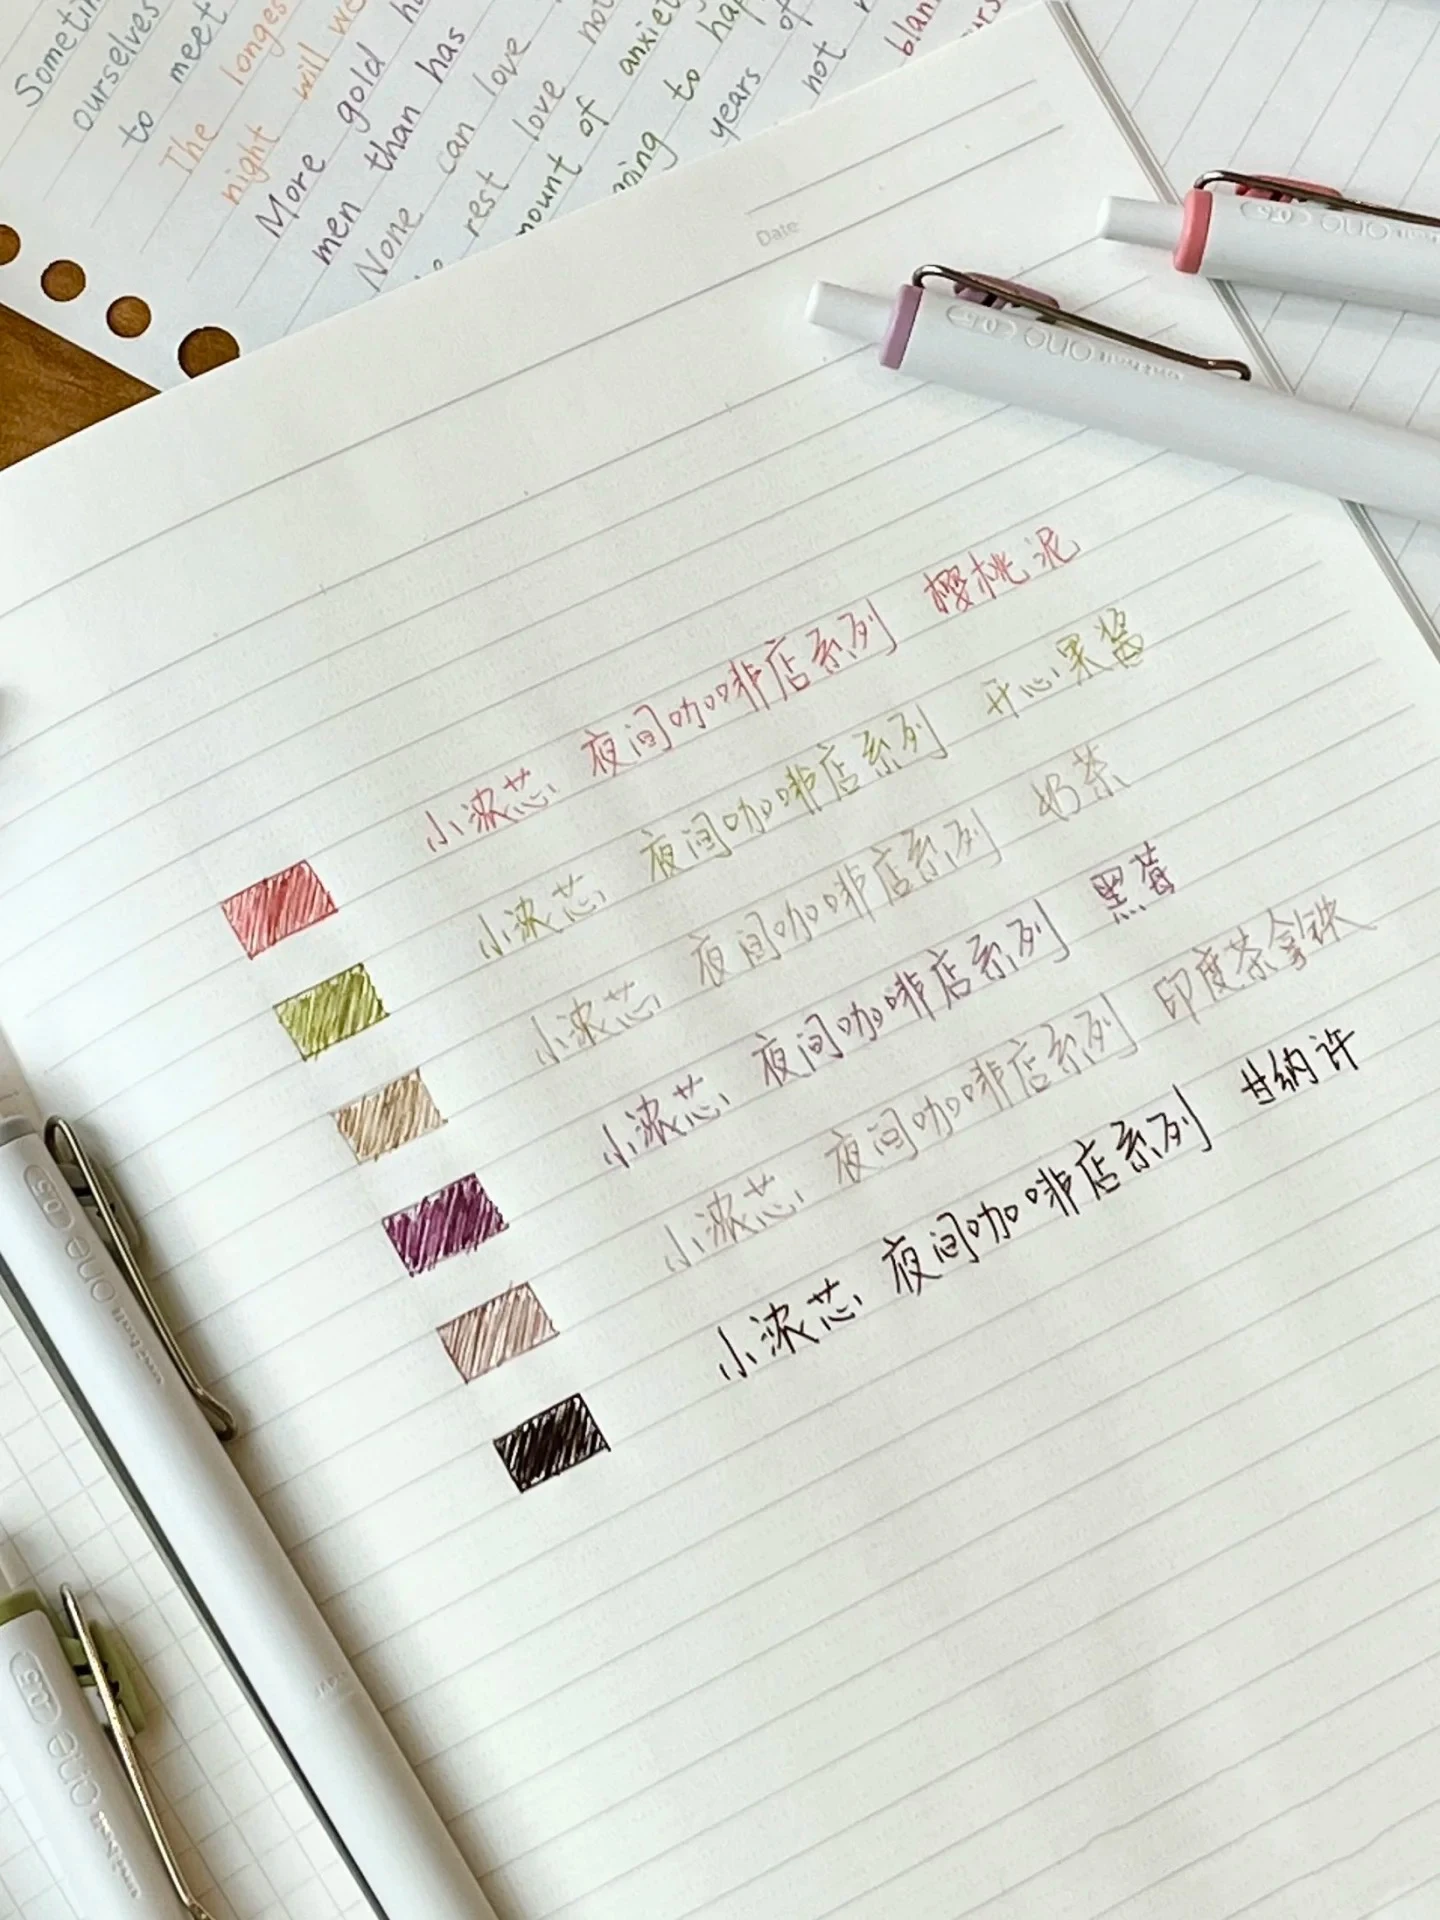 Sometin
ourselves
to meet
The longes
night will we
More gold h
men than has
None can love
rest love not
mount of anxiet
ping to hap
years of
not
blan
Date
0.5 uni-ball one
0.5 uni-ball one
小浓芯 夜间咖啡店系列 樱桃泥
小浓芯 夜间咖啡店系列 开心果酱
小浓芯 夜间咖啡店系列 奶茶
小浓芯 夜间咖啡店系列 黑莓
小浓芯 夜间咖啡店系列 印度茶拿铁
小浓芯 夜间咖啡店系列 甘纳许
0.5 uni-ball one
0.5 uni-ball one